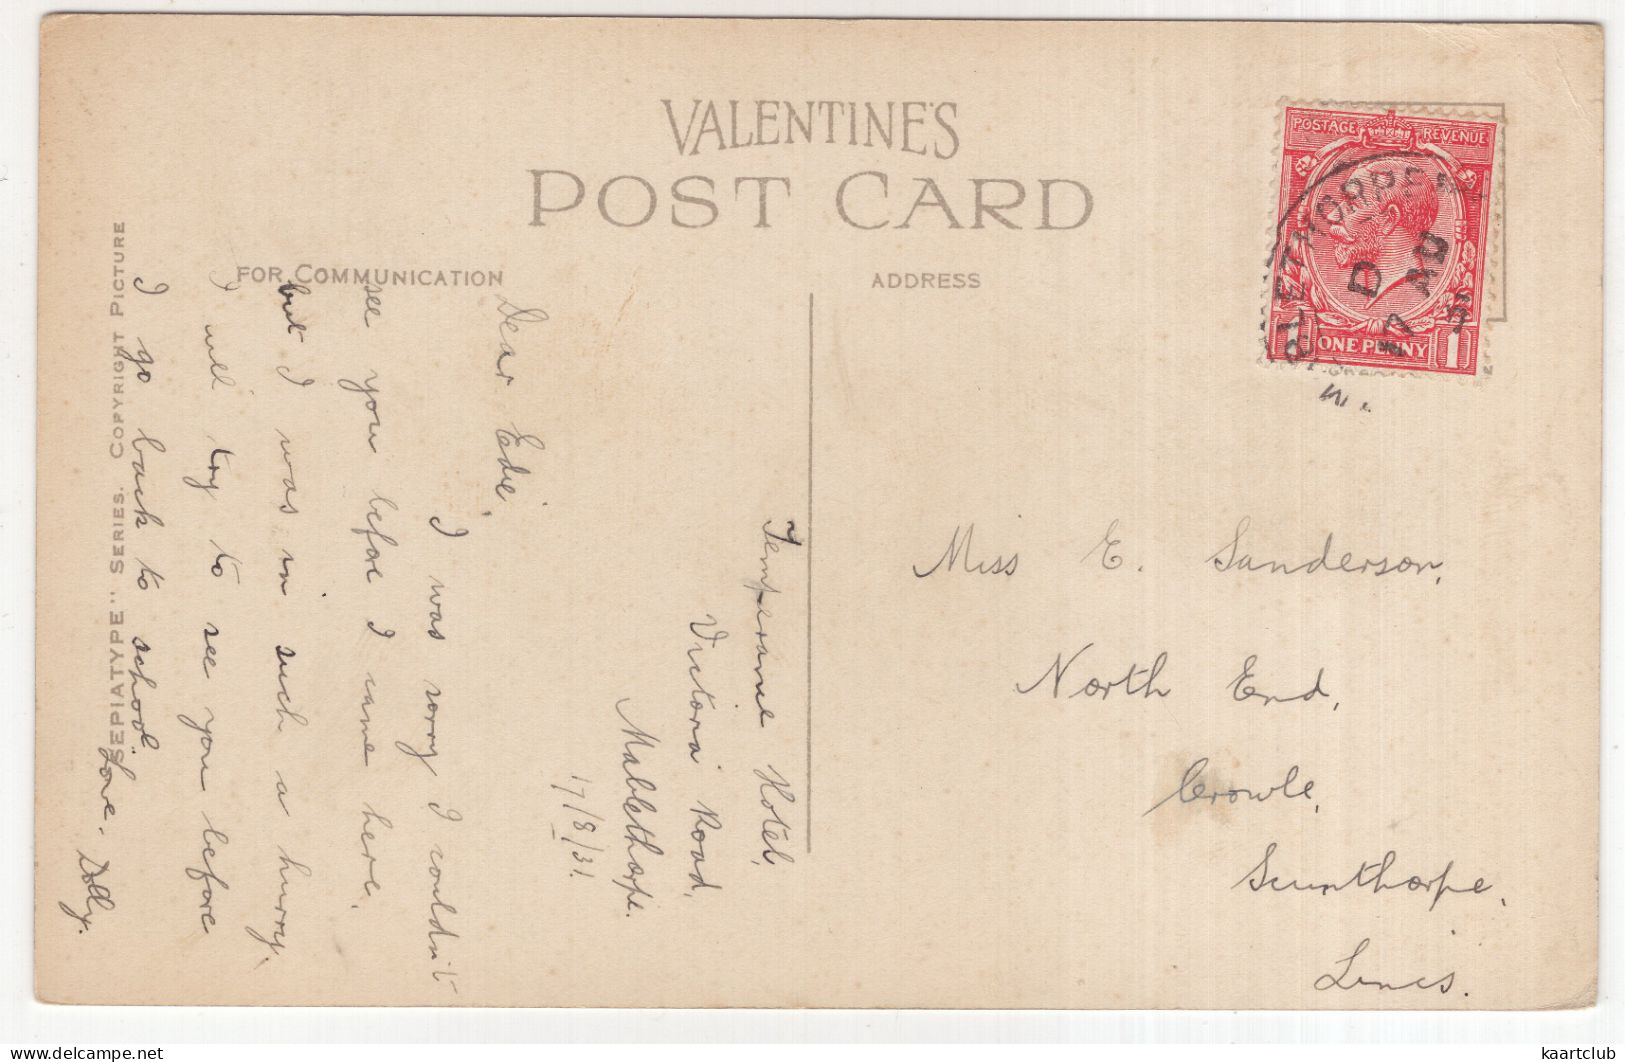 VALENTINE'S
POST CARD
FOR COMMUNICATION
ADDRESS
"SEPIATYPE" SERIES. COPYRIGHT PICTURE
POSTAGE REVENUE
1 ONE PENNY 1
BLETHORPE
D
17 AU
31
Temperance Hotel,
Victoria Road,
Mablethorpe.
17/8/31.
Dear Edie,
I was sorry I couldn't
see you before I came here,
but I was in such a hurry.
I will try to see you before
I go back to school.
Love. Dolly.
Miss E. Sanderson,
North End,
Crowle,
Scunthorpe,
Lincs.
kaartclub
delcampe.net